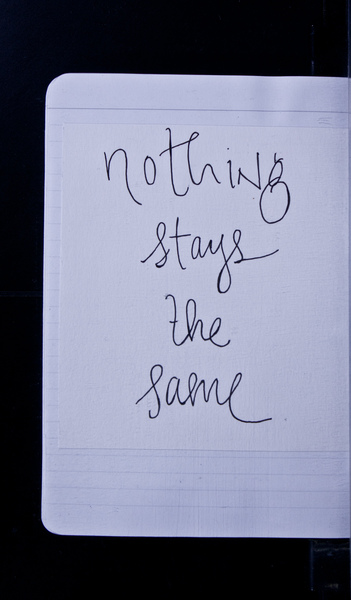 nothing
stays
the
same